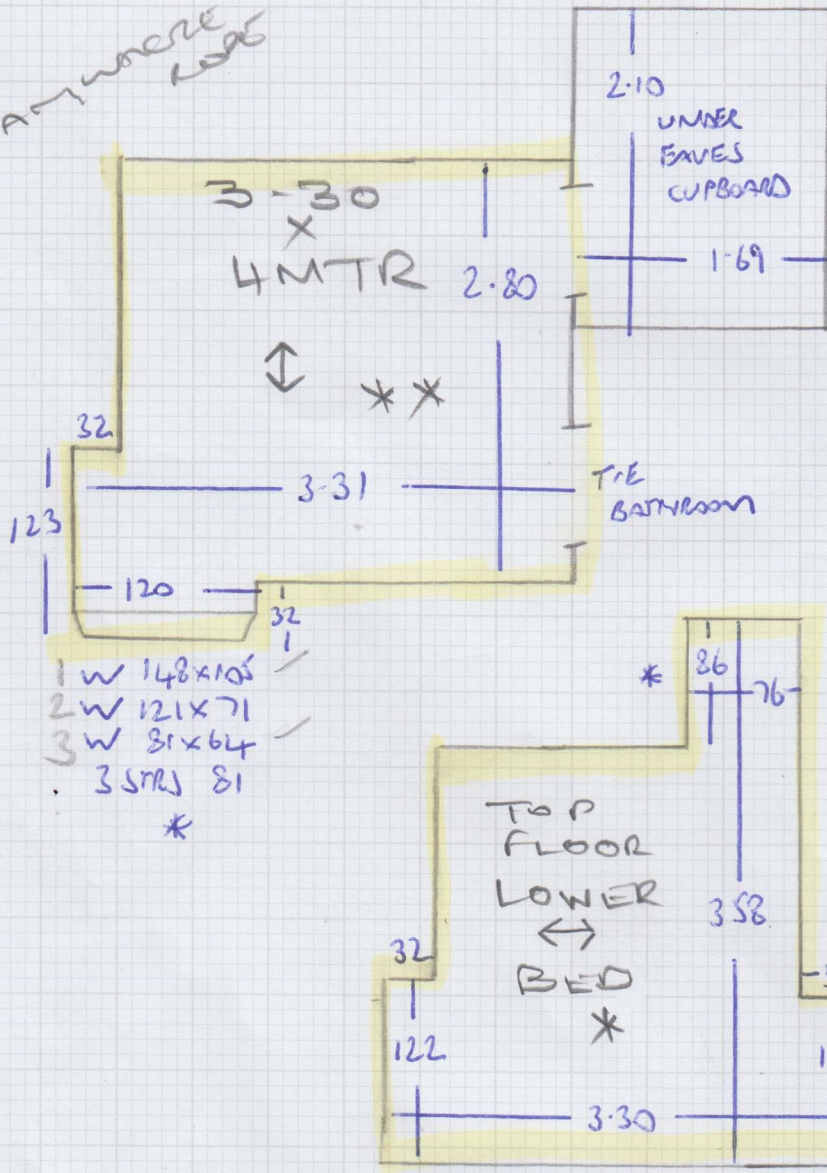 ANYWHERE
2.10
UNDER
EAVES
CUPBOARD
1.69
3-30
X
4MTR
2.80
**
32
3.31
123
T/E
BATHROOM
120
32
1 W 148x105
2 W 121x71
3 W 81x64
3 STRS 81
*
*
86
76
TOP
FLOOR
LOWER
BED
*
3.58
32
122
3.30